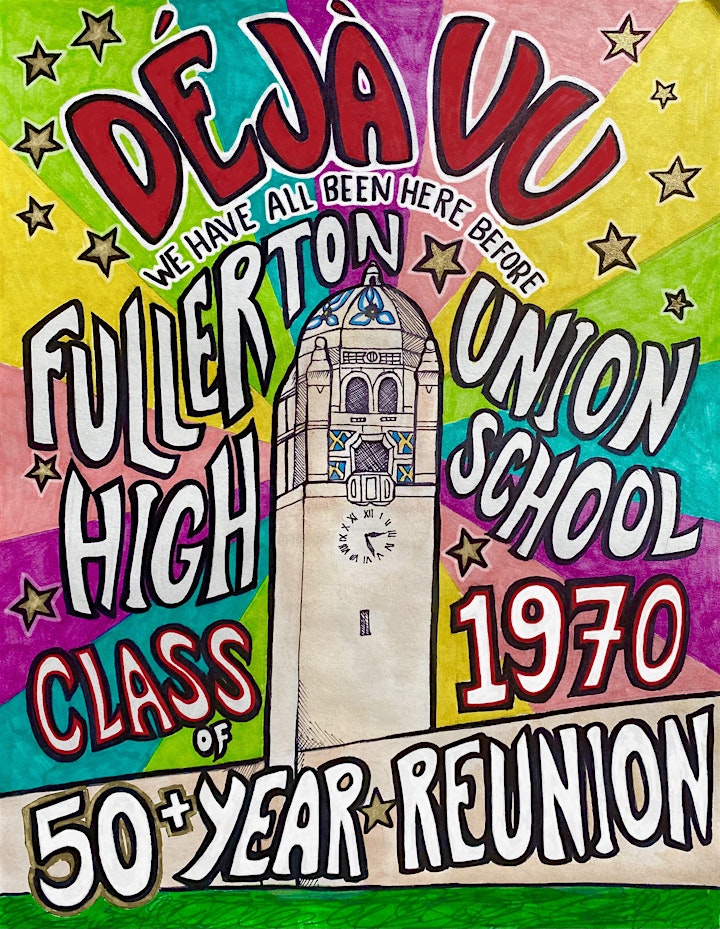 DÉJÀ VU
WE HAVE ALL BEEN HERE BEFORE
FULLERTON UNION
HIGH SCHOOL
CLASS OF 1970
50+ YEAR REUNION